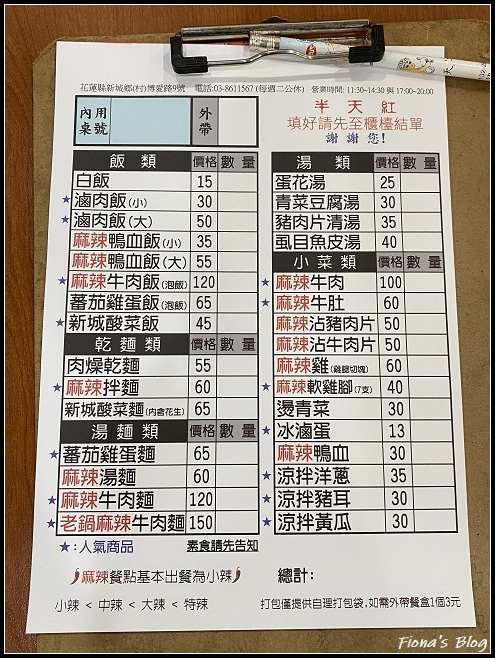 花蓮縣新城鄉(村)博愛路9號 電話:03-8611567 (每週二公休) 營業時間: 11:30~14:30 與 17:00~20:00
內用桌號 外帶
半天紅
填好請先至櫃檯結單
謝謝您!
飯類 價格 數量
白飯 15
★滷肉飯(小) 30
★滷肉飯(大) 50
麻辣鴨血飯(小) 35
麻辣鴨血飯(大) 55
★麻辣牛肉飯(泡飯) 120
蕃茄雞蛋飯(泡飯) 65
★新城酸菜飯 45
乾麵類 價格 數量
肉燥乾麵 55
★麻辣拌麵 60
新城酸菜麵(內含花生) 65
湯麵類 價格 數量
★蕃茄雞蛋麵 65
麻辣湯麵 60
★麻辣牛肉麵 120
★老鍋麻辣牛肉麵 150
★:人氣商品 素食請先告知
湯類 價格 數量
蛋花湯 25
青菜豆腐湯 30
豬肉片清湯 35
虱目魚皮湯 40
小菜類 價格 數量
★麻辣牛肉 100
★麻辣牛肚 60
麻辣沾豬肉片 50
麻辣沾牛肉片 50
麻辣雞(雞腿切塊) 60
★麻辣軟雞腳(7支) 40
燙青菜 30
★冰滷蛋 13
麻辣鴨血 30
★涼拌洋蔥 35
★涼拌豬耳 30
★涼拌黃瓜 30
麻辣餐點基本出餐為小辣
總計:
小辣 < 中辣 < 大辣 < 特辣
打包僅提供自理打包袋,如需外帶餐盒1個3元
Fiona's Blog